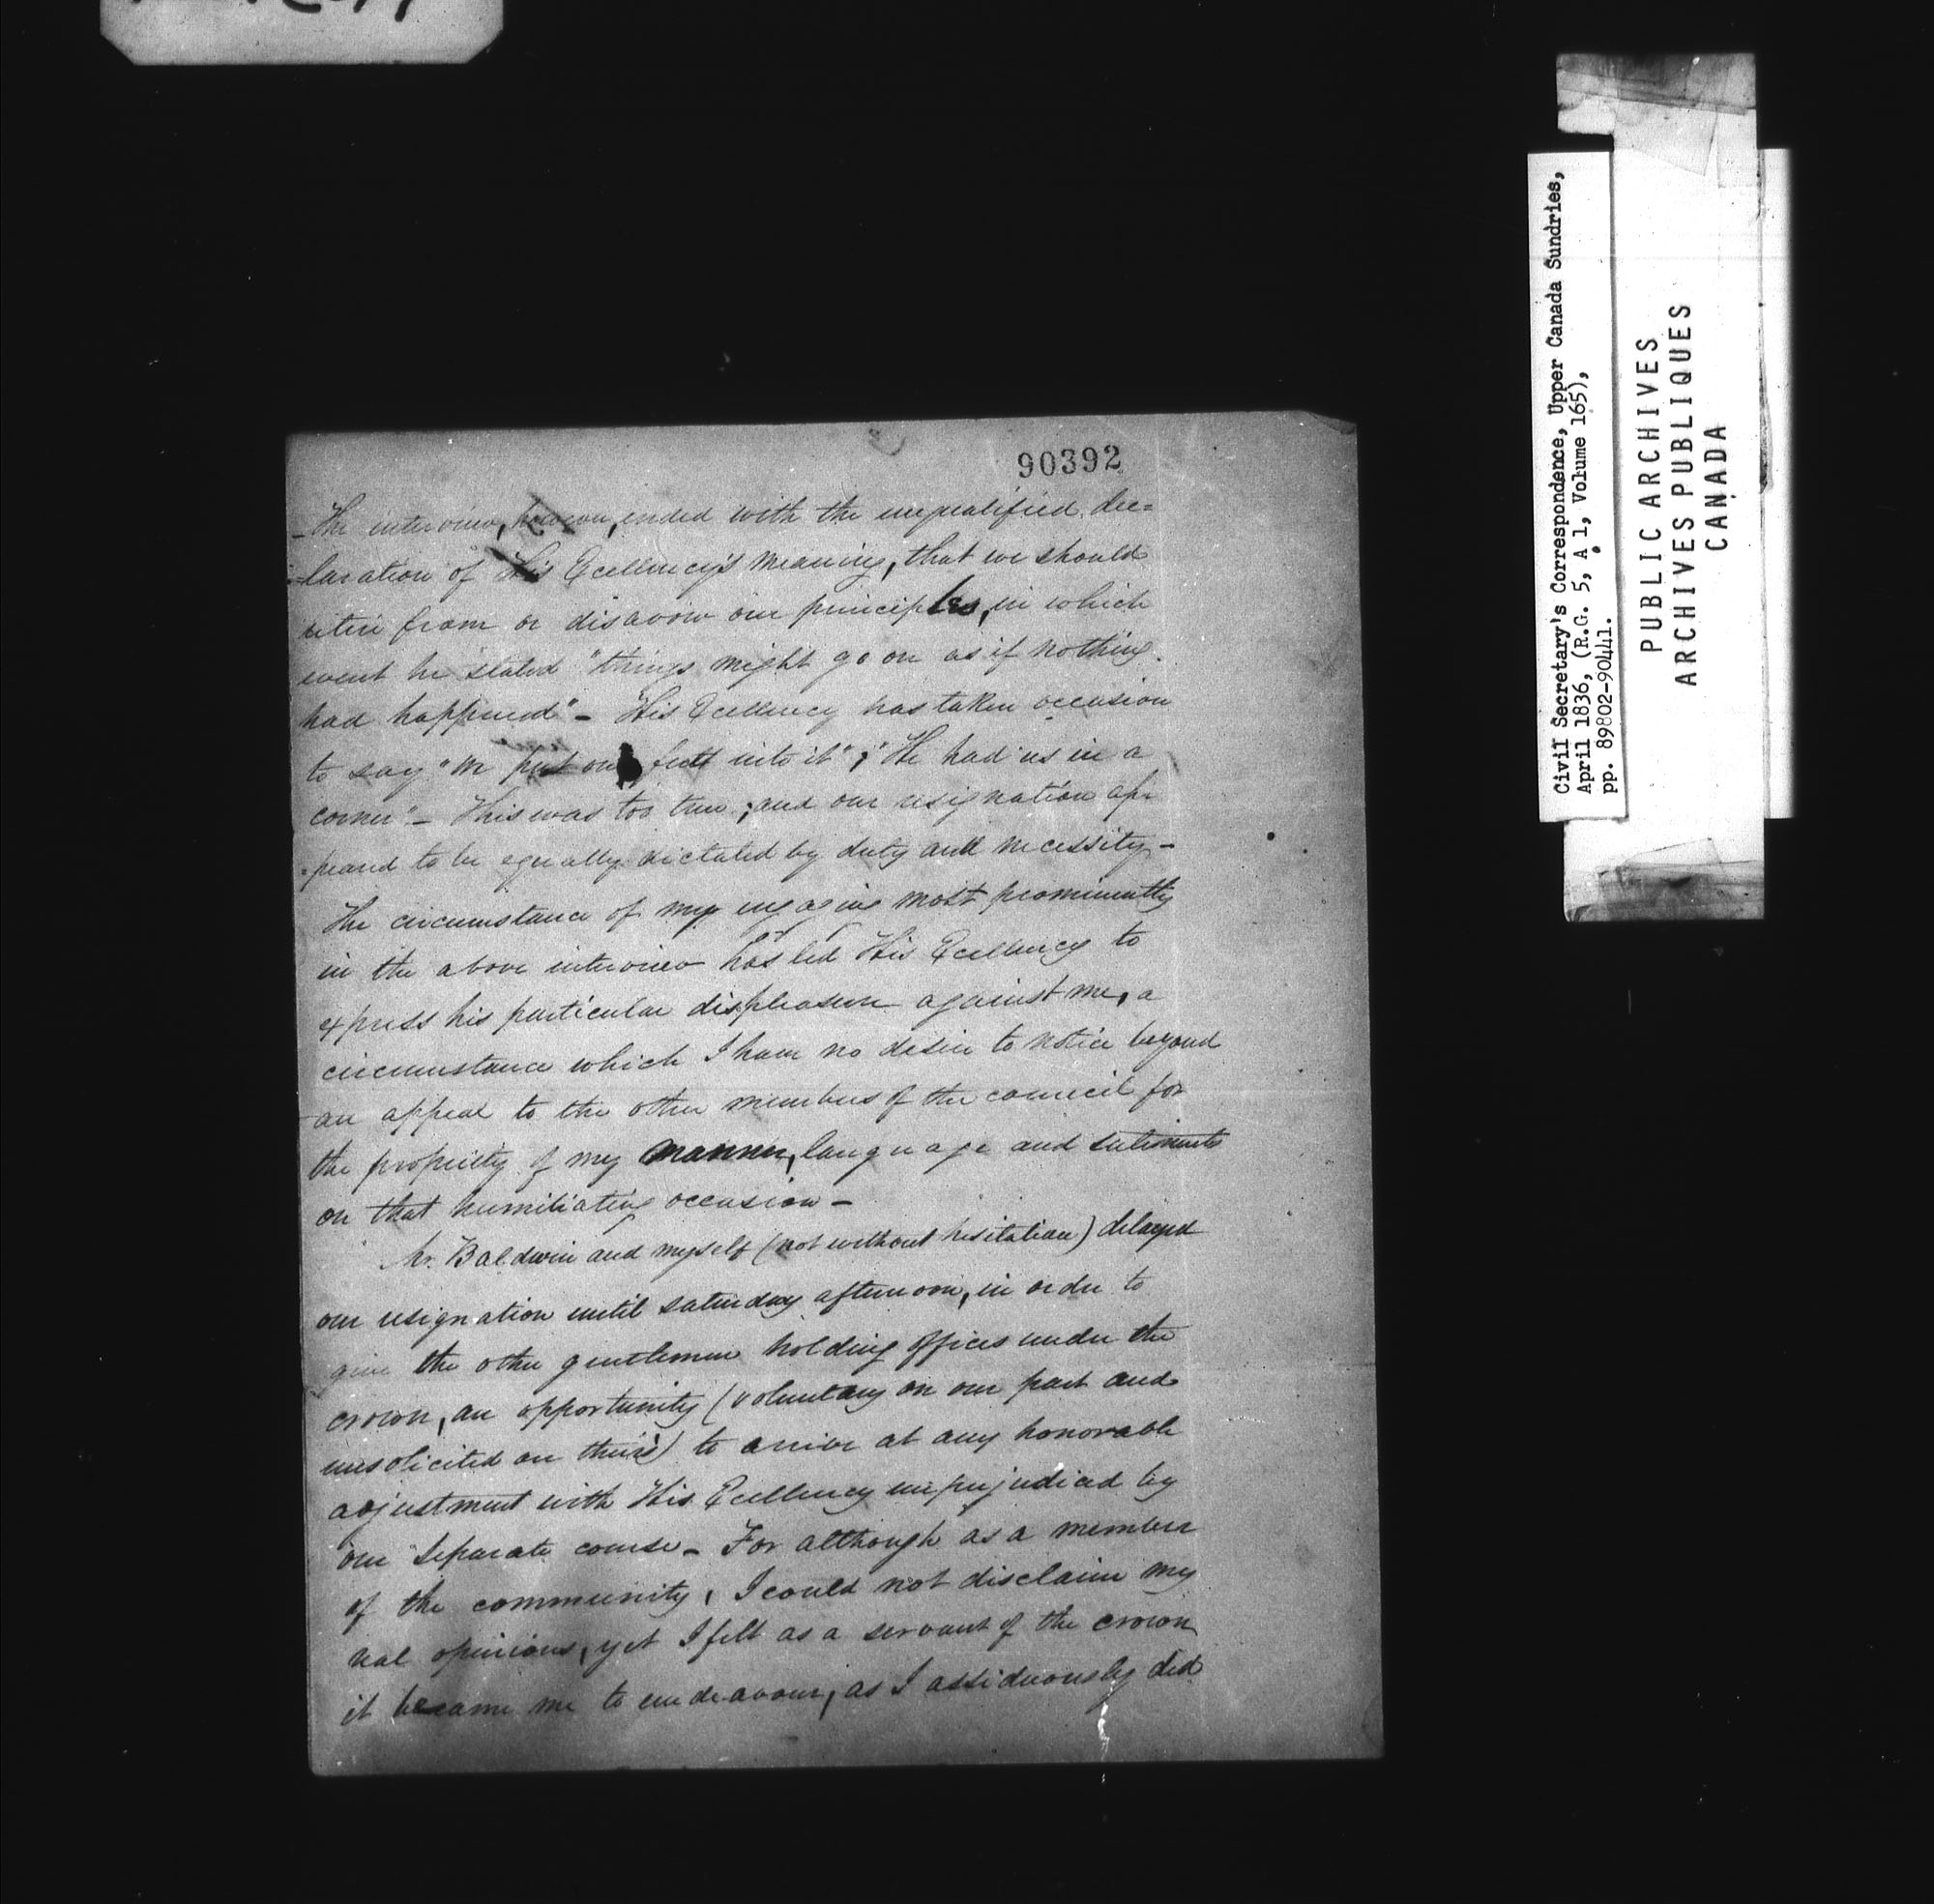 90392
The interview, however, ended with the unqualified dec=
laration of His Excellency's meaning, that we should
retire from or disavow our principles, in which
event he stated "things might go on as if nothing
had happened" – His Excellency has taken occasion
to say "we put our feet into it"; "He had us in a
corner" – This was too true; and our resignation ap-
peared to be equally dictated by duty and necessity –
The circumstance of my engaging most prominently
in the above interview has led His Excellency to
express his particular displeasure against me, a
circumstance which I have no desire to notice beyond
an appeal to the other members of the council for
the propriety of my manner, language and sentiments
on that humiliating occasion –
Mr. Baldwin and myself (not without hesitation) delayed
our resignation until saturday afternoon, in order to
give the other gentlemen holding offices under the
crown, an opportunity (voluntary on our part and
unsolicited on theirs) to arrive at any honorable
adjustment with His Excellency unprejudiced by
our separate course – For although as a member
of the community, I could not disclaim my
real opinions, yet I felt as a servant of the crown
it became me to endeavour, as I assiduously did
Civil Secretary's Correspondence, Upper Canada Sundries,
April 1836, (R.G. 5, A 1, Volume 165),
pp. 89802-90441.
PUBLIC ARCHIVES
ARCHIVES PUBLIQUES
CANADA